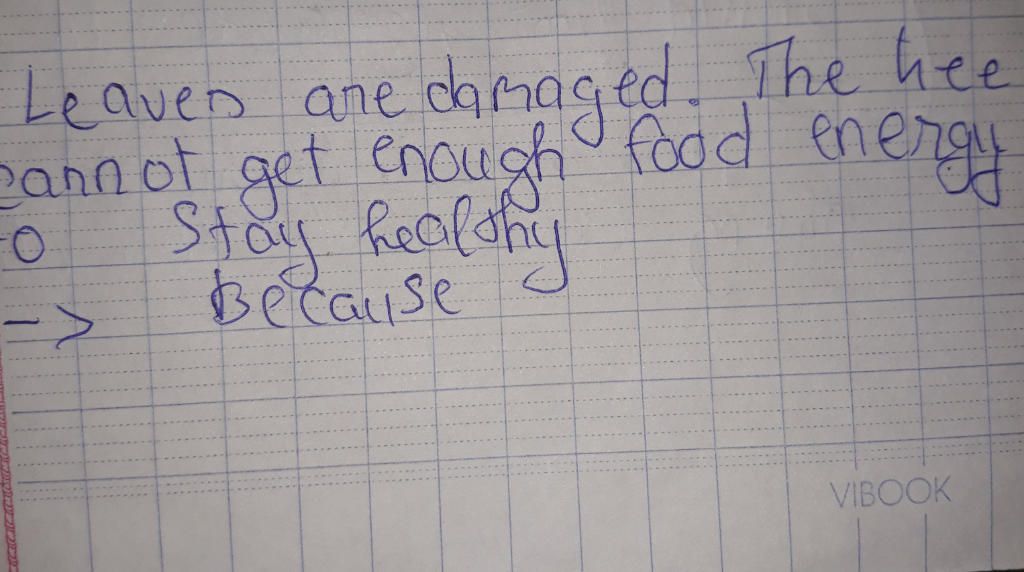 Leaves are damaged. The tree
cannot get enough food energy
to stay healthy
-> Because
VIBOOK